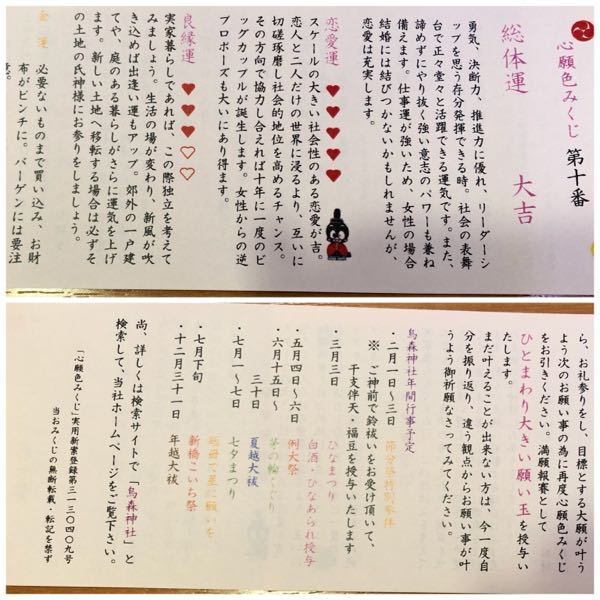 心願色みくじ 第十番
総体運 大吉
勇気、決断力、推進力に優れ、リーダーシ
ップを思う存分発揮できる時。社会の表舞
台で正々堂々と活躍できる運気です。また、
諦めずにやり抜く強い意志のパワーも兼ね
備えます。仕事運が強いため、女性の場合
結婚には結びつかないかもしれませんが、
恋愛は充実します。
恋愛運 ♥♥♥♥♥
スケールの大きい社会性のある恋愛が吉。
恋人と二人だけの世界に浸るより、互いに
切磋琢磨し社会的地位を高めるチャンス。
その方向で協力し合えれば十年に一度のビ
ッグカップルが誕生します。女性からの逆
プロポーズも大いにあり得ます。
良縁運 ♥♥♥♡♡
実家暮らしであれば、この際独立を考えて
みましょう。生活の場が変わり、新風が吹
き込めば出逢い運もアップ。郊外の一戸建
てや、庭のある暮らしがさらに運気を上げ
ます。新しい土地へ移転する場合は必ずそ
の土地の氏神様にお参りをしましょう。
金運
必要ないものまで買い込み、お財
布がピンチに。バーゲンには要注
意。
ら、お礼参りをし、目標とする大願が叶う
よう次のお願い事の為に再度心願色みくじ
をお引きください。満願報賽として
ひとまわり大きい願い玉を授与い
たします。
まだ叶えることが出来ない方は、今一度自
分を振り返り、違う観点からお願い事が叶
うよう御祈願なさってみてください。
烏森神社年間行事予定
・二月一日〜三日 節分祭特別参拝
※ ご神前で鈴祓いをお受け頂いて、
干支伴天・福豆を授与いたします
・三月三日 ひなまつり
白酒・ひなあられ授与
・五月四日〜六日 例大祭
・六月十五日〜 茅の輪くぐり
三十日 夏越大祓
・七月一〜七日 七夕まつり
短冊で星に願いを
・七月下旬 新橋こいち祭
・十二月三十一日 年越大祓
尚、詳しくは検索サイトで「烏森神社」と
検索して、当社ホームページをご覧下さい。
「心願色みくじ」実用新案登録第三一三〇四〇九号
当おみくじの無断転載・転記を禁ず